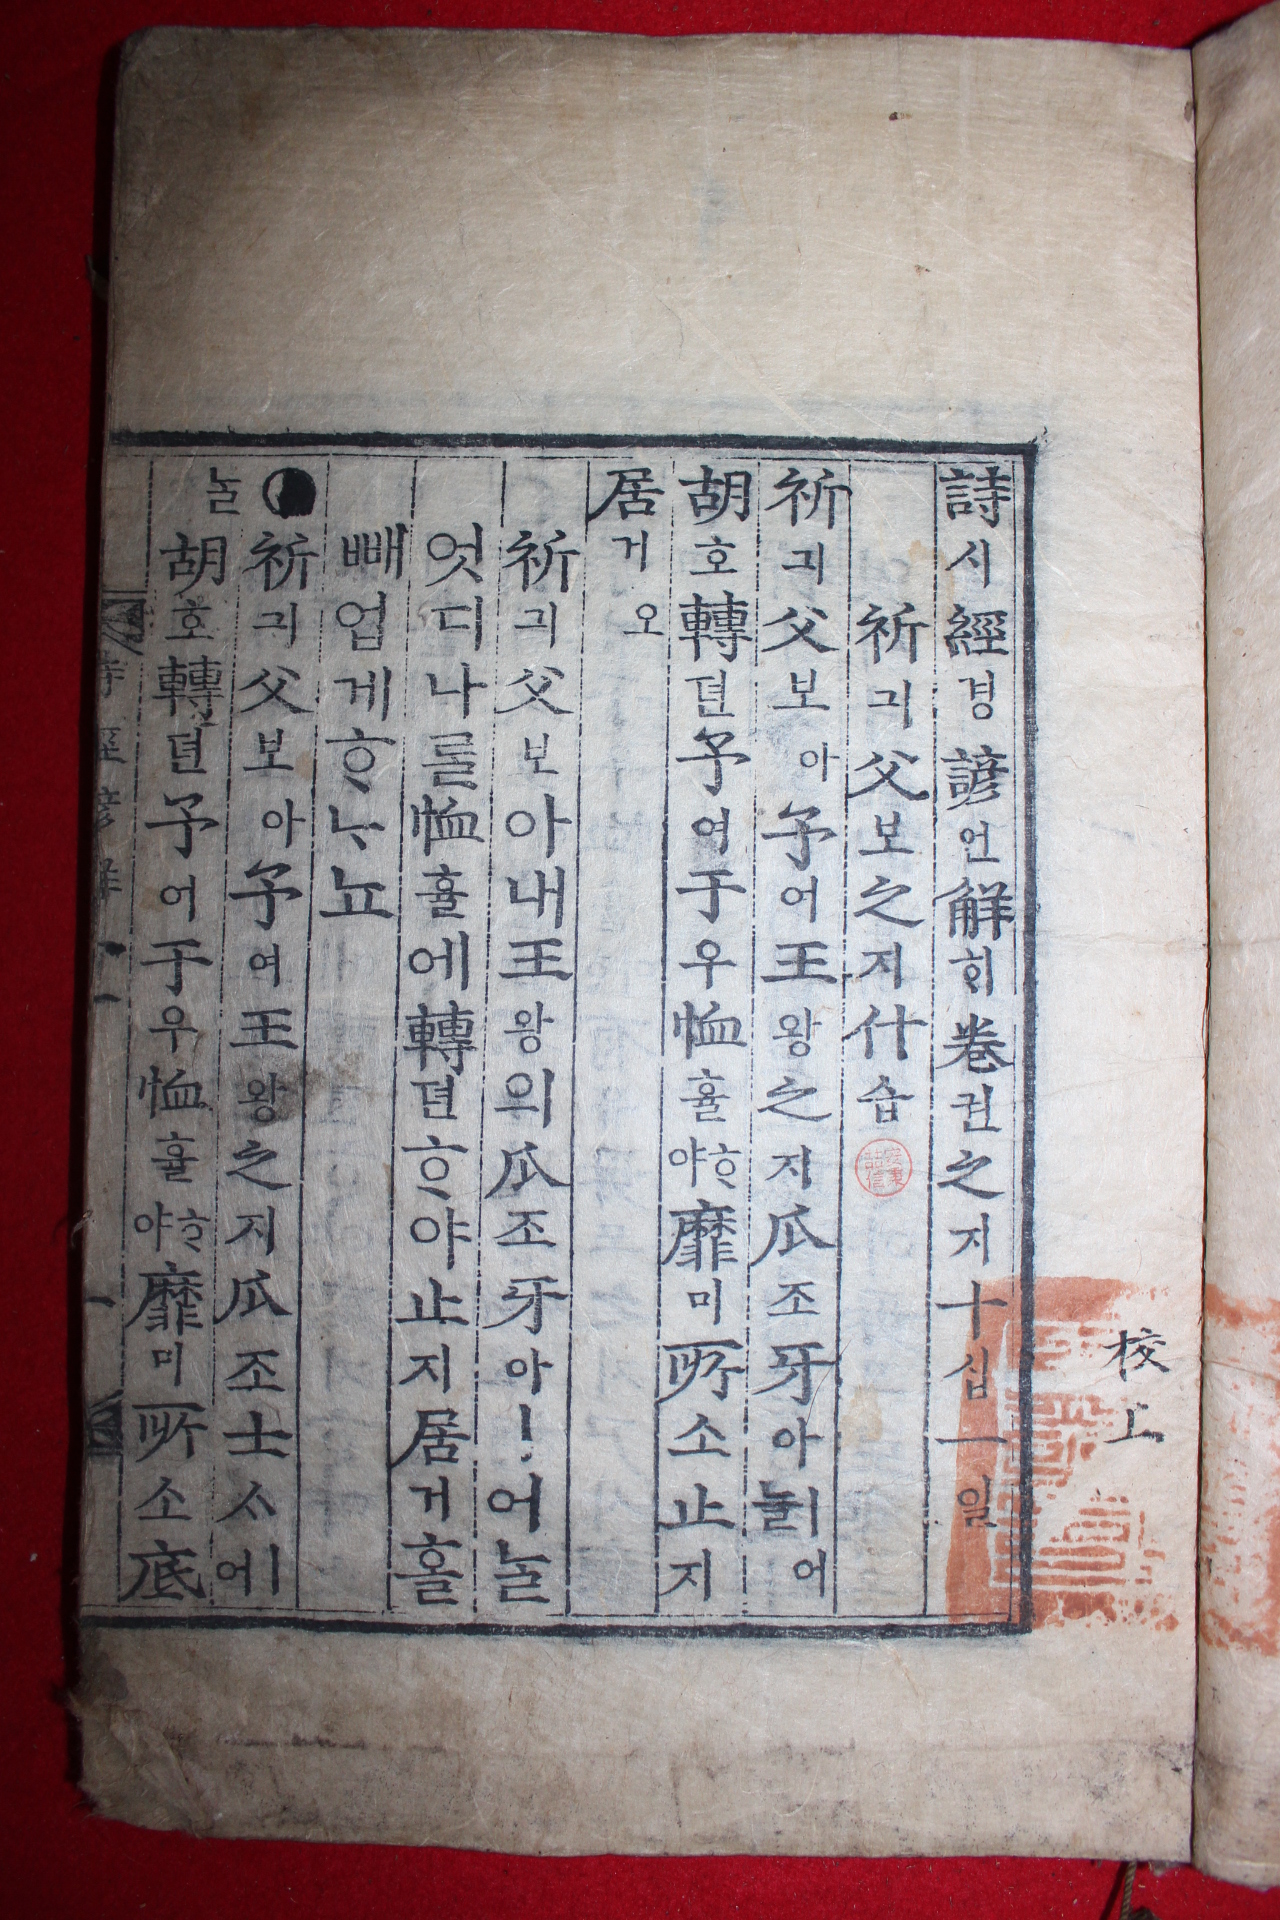 詩시經경諺언解ᄒᆡ卷권之지十십一일
祈긔父보之지什습
祈긔父보아予여王왕之지爪조牙아ㅣ어늘
胡호轉뎐予여于우恤휼ᄒᆞ야靡미所소止지
居거오
祈긔父보아내王왕의爪조牙아ㅣ어늘
엇디나를恤휼에轉뎐ᄒᆞ야止지居거홀
빼업게ᄒᆞᄂᆞ뇨
祈긔父보아予여王왕之지爪조士ᄉᆞㅣ어
늘胡호轉뎐予여于우恤휼ᄒᆞ야靡미所소底
詩經諺解 十一 一
校上